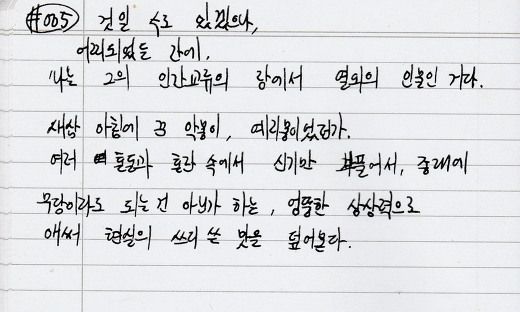 #005 것일 수도 있겠으나,
어찌되었든 간에,
나는 그의 인간교류의 장에서 열외의 인물인 거다.
새삼 아침에 꾼 악몽이, 예지몽이었던가.
여러 통통과 혼란 속에서 신기만 부풀어서, 종래에
무당이라도 되는 건 아닌가 하는, 엉뚱한 상상력으로
애써 현실의 쓰디 쓴 맛을 덮어본다.